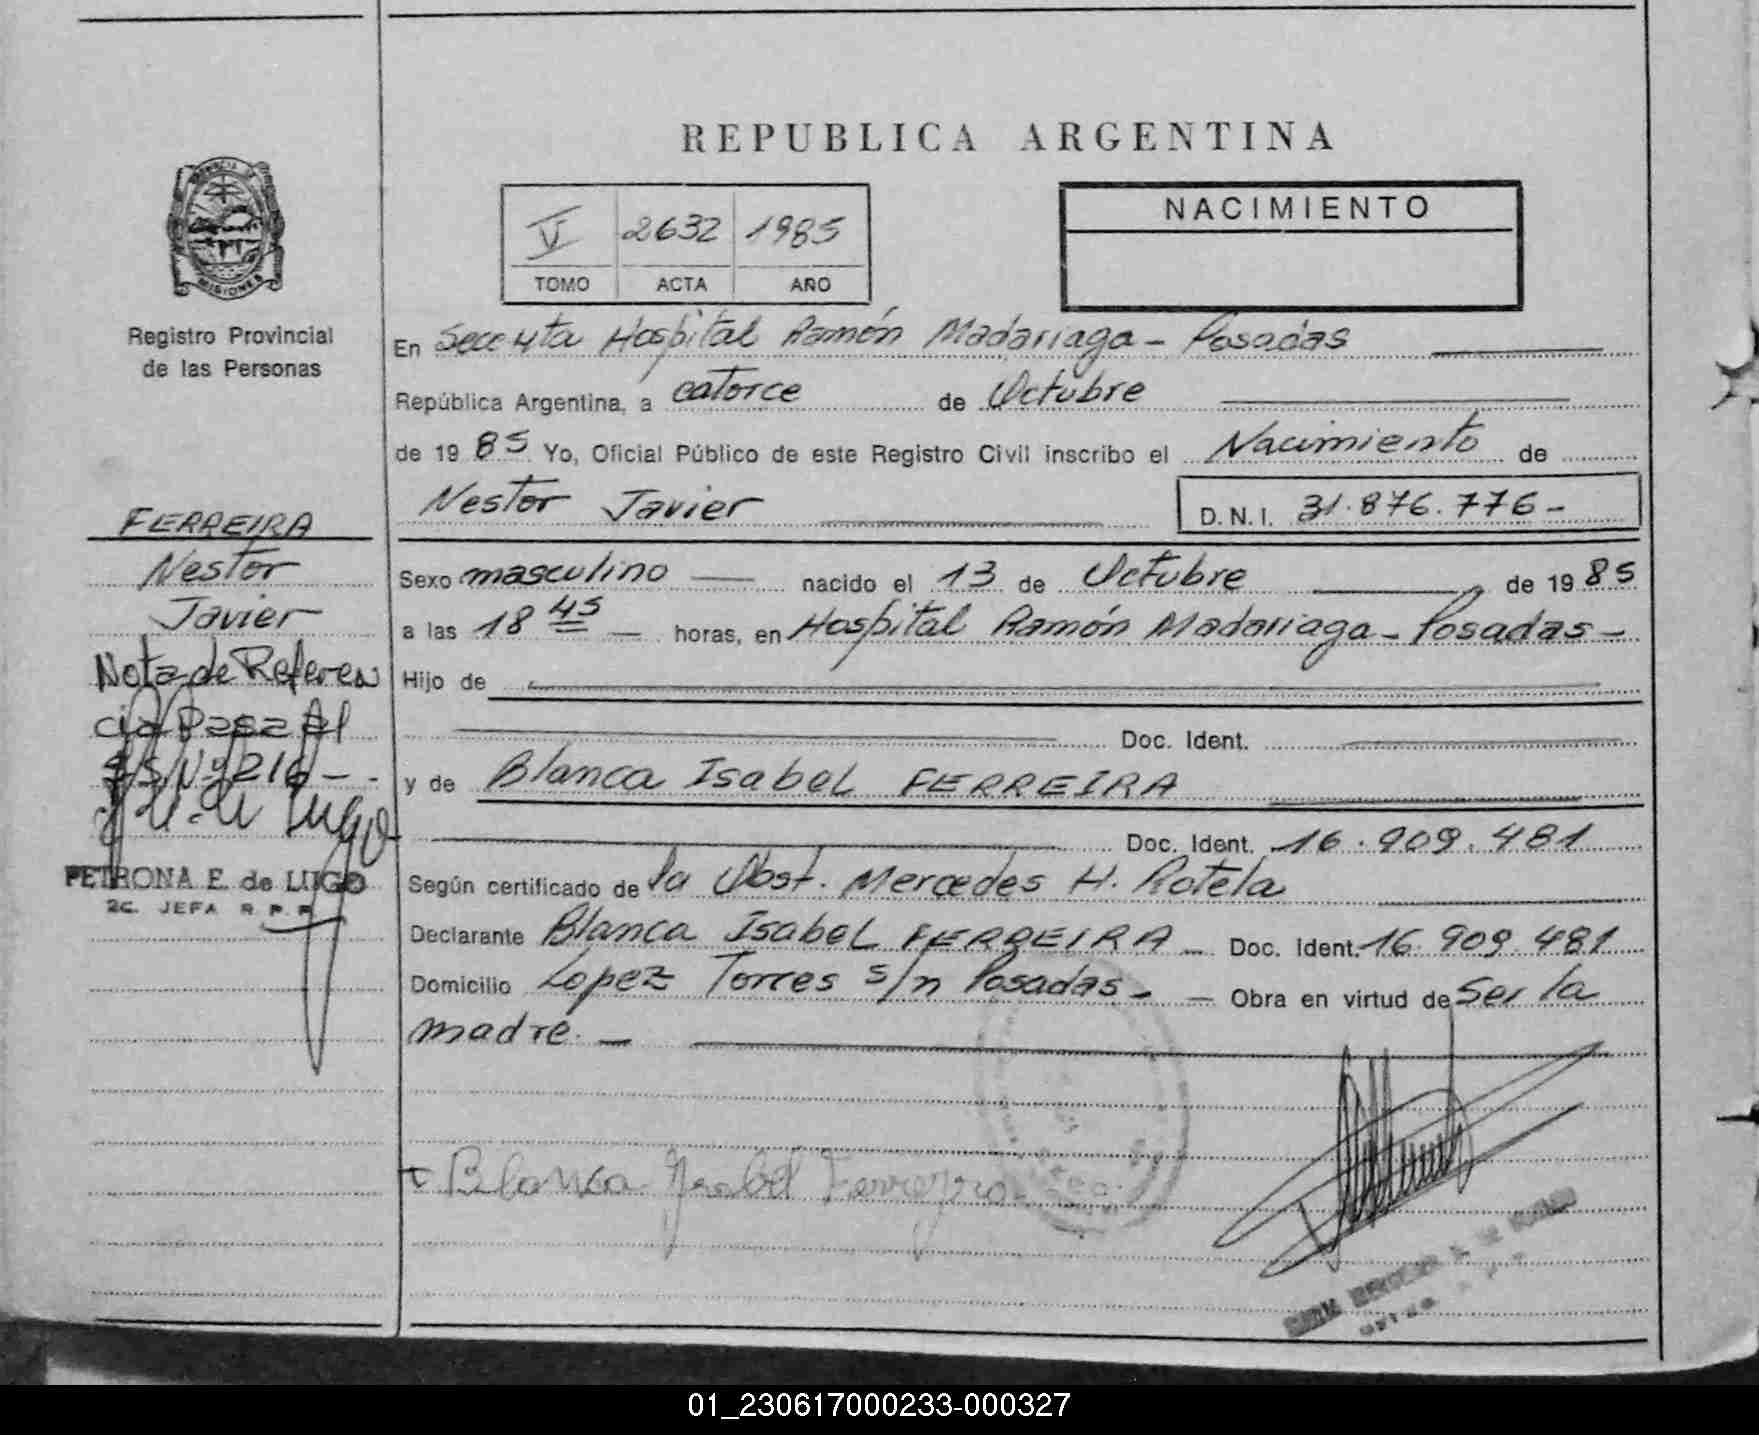 REPUBLICA ARGENTINA
V 2632 1985
TOMO ACTA AÑO
NACIMIENTO
PROVINCIA DE
MISIONES
Registro Provincial
de las Personas
FERREIRA
Nestor
Javier
Nota de Referen
cia Pasa Al
Nº 216 -
PETRONA E. de LUGO
2C. JEFA R. P. P.
En Secc 4ta Hospital Ramón Madariaga - Posadas
República Argentina, a catorce de Octubre
de 19 85 Yo, Oficial Público de este Registro Civil inscribo el Nacimiento de
Nestor Javier D.N.I. 31.876.776-
Sexo masculino nacido el 13 de Octubre de 19 85
a las 18 45 horas, en Hospital Ramón Madariaga - Posadas -
Hijo de
Doc. Ident.
y de Blanca Isabel FERREIRA
Doc. Ident. 16.909.481
Según certificado de la Obst. Mercedes H. Rotela
Declarante Blanca Isabel FERREIRA - Doc. Ident. 16.909.481
Domicilio Lopez Torres s/n Posadas - Obra en virtud de Ser la
madre. -
Blanca Ysabel Ferreyra
01_230617000233-000327